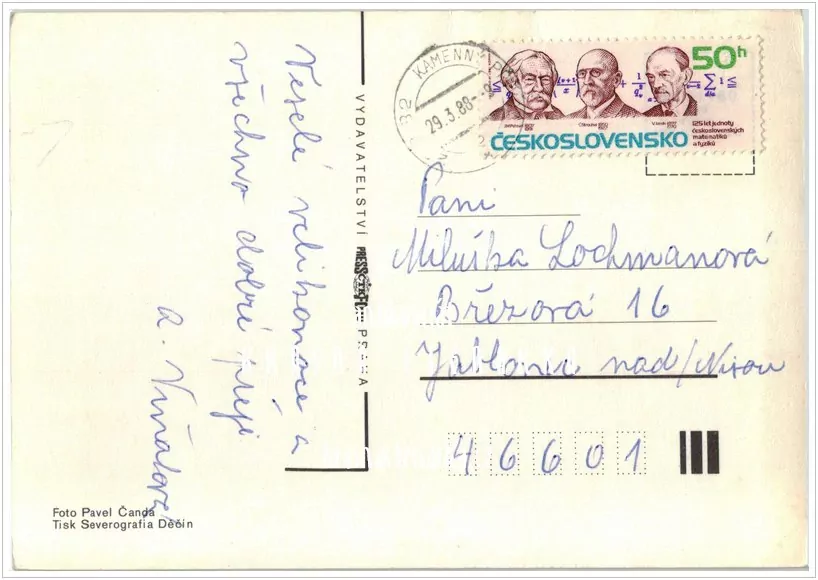 Veselé velikonoce a
všechno dobré přeji
a. Vrňatová
VYDAVATELSTVÍ PRESSFOTO PRAHA
KAMENN
29.3.88
50h
ČESKOSLOVENSKO
125 let jednoty
československých
matematiků
a fyziků
Paní
Miluška Lochmanová
Březová 16
Jablonec nad/Nisou
46601
Foto Pavel Čanda
Tisk Severografia Děčín